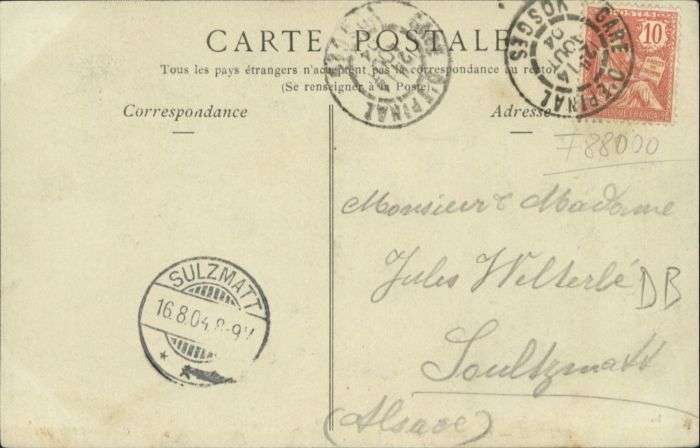 CARTE POSTALE
Tous les pays étrangers n'acceptent pas la correspondance au recto
(Se renseigner à la Poste).
Correspondance
Adresse
GARE D'EPINAL
VOSGES
AOUT
04
10
GARE D'EPINAL
F88000
Monsieur & Madame
Jules Welterlé
DB
Soultzmatt
(Alsace)
SULZMATT
16.8.04. 8-9V